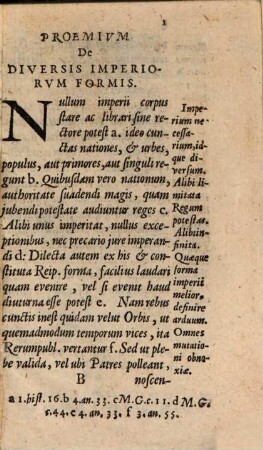 1
PROEMIVM
De
DIVERSIS IMPERIO-
RVM FORMIS.
Nullum imperii corpus
stare ac librari sine re-
ctore potest a. ideo cun-
ctas nationes, & urbes,
populus, aut primores, aut singuli re-
gunt b. Quibusdam vero nationum,
authoritate suadendi magis, quam
jubendi potestate audiuntur reges c.
Alibi unus imperitat, nullus exce-
ptionibus, nec precario jure imperan-
di d: Dilecta autem ex his & con-
stituta Reip. forma, facilius laudari
quam evenire, vel si evenit haud
diuturna esse potest e. Nam rebus
cunctis inest quidam velut Orbis, ut
quemadmodum temporum vices, ita
Rerumpubl. vertantur f. Sed ut ple-
be valida, vel ubi Patres polleant,
B noscen-
Impe-
rium ne-
cessa-
rium, id-
que di-
versum.
Alibi li-
mitata
Regum
potestas.
Alibi in-
finita.
Quæque
forma
imperii
melior,
definire
arduum.
Omnes
mutatio-
ni obno-
xiæ.
a 1. hist. 16. b 4. an. 33. c M. G. c. 11. d M. G.
s. 44. e 4. an. 33. f 3. an. 55.